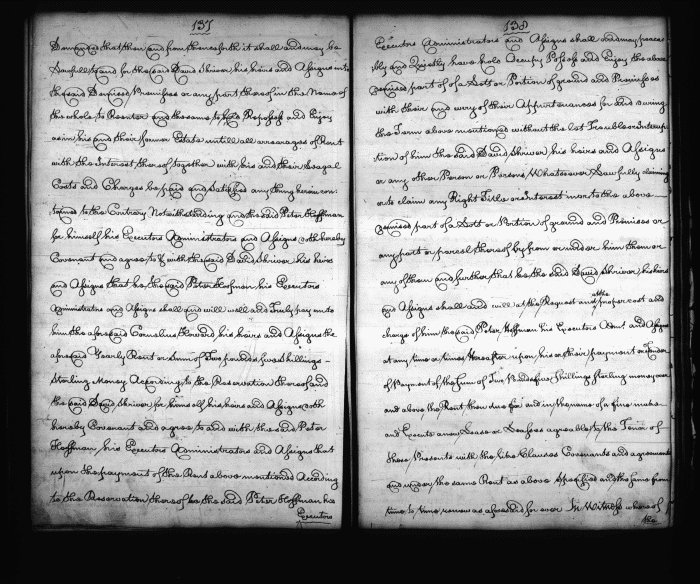 137
Demanded that then and from thenceforth it shall and may be
Lawfull to and for the said David Shriver his heirs and Assigns into
the said Demised Premisses or any part thereof in the Name of
the whole to Reenter and the same to hold Repossess and Enjoy
as in his and their former Estate untill all arrearages of Rent
with the Interest thereof together with his and their Leagal
Costs and Charges be paid and Satisfied any thing herein con:
tained to the Contrary Notwithstanding and the said Peter Hoffman
for himself his Executors Administrators and Assigns doth hereby
Covenant and agree to & with the said David Shriver his heirs
and Assigns that he the said Peter Hoffman his Executors
Administrators and Assigns shall and will well and Truly pay unto
him the aforesaid Cornelius Howard his heirs and Assigns the
aforesaid Yearly Rent or Sum of Two pounds five Shillings
Sterling Money According to the Reservation thereof and
the said David Shriver for himself his heirs and Assigns doth
hereby Covenant and agree to and with the said Peter
Hoffman his Executors Administrators and Assigns that
upon the payment of the Rent above mentioned According
to the Reservation thereof he the said Peter Hoffman his
Executors
138
Executors Administrators and Assigns shall and may peacea
bly and Quietly have hold Occupy Possess and Enjoy the above
demised part of a Lott or Portion of ground and Premisses
with their and every of their Appurtenances for and during
the Term above mentioned without the let Trouble or Interrup
tion of him the said David Shriver his heirs and Assigns
or any other Person or Persons Whatsoever Lawfully claiming
or to claim any Right Title or Interest in or to the above
demised part of a Lott or Portion of ground and Premises or
any part or parcel thereof by from or under him them or
any of them and further that he the said David Shriver his heirs
and Assigns shall and will at the Request and at the proper cost and
charge of him the said Peter Hoffman his Executors Admt. and Assigns
at any time or times hereafter upon his or their payment or Tender
of Payment of the Sum of Two Pounds five Shillings Sterling money over
and above the Rent then due for and in the name of a fine make
and Execute a new Lease or Leases agreable to the Tenor of
these Presents with the like Clauses Covenants and agreements
and under the same Rent as above Specified and the same from
time to time renew as aforesaid for ever In Witness whereof